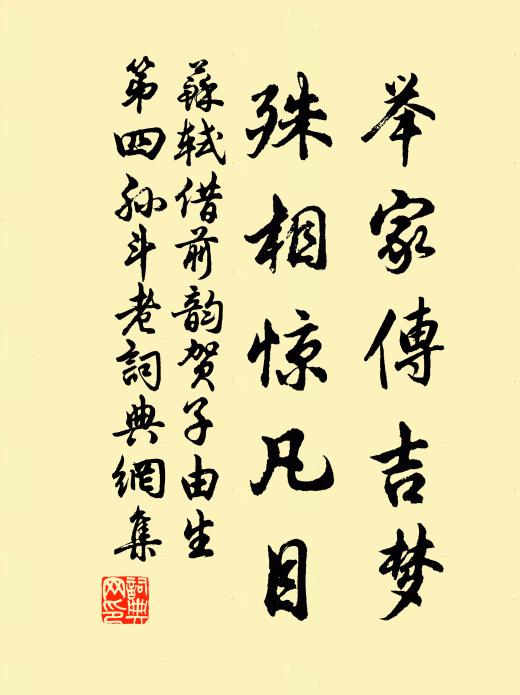 举家傳吉梦
殊相惊凡目
蘇轼借前韵贺子由生
第四孙斗老詞典網集
詞典网印